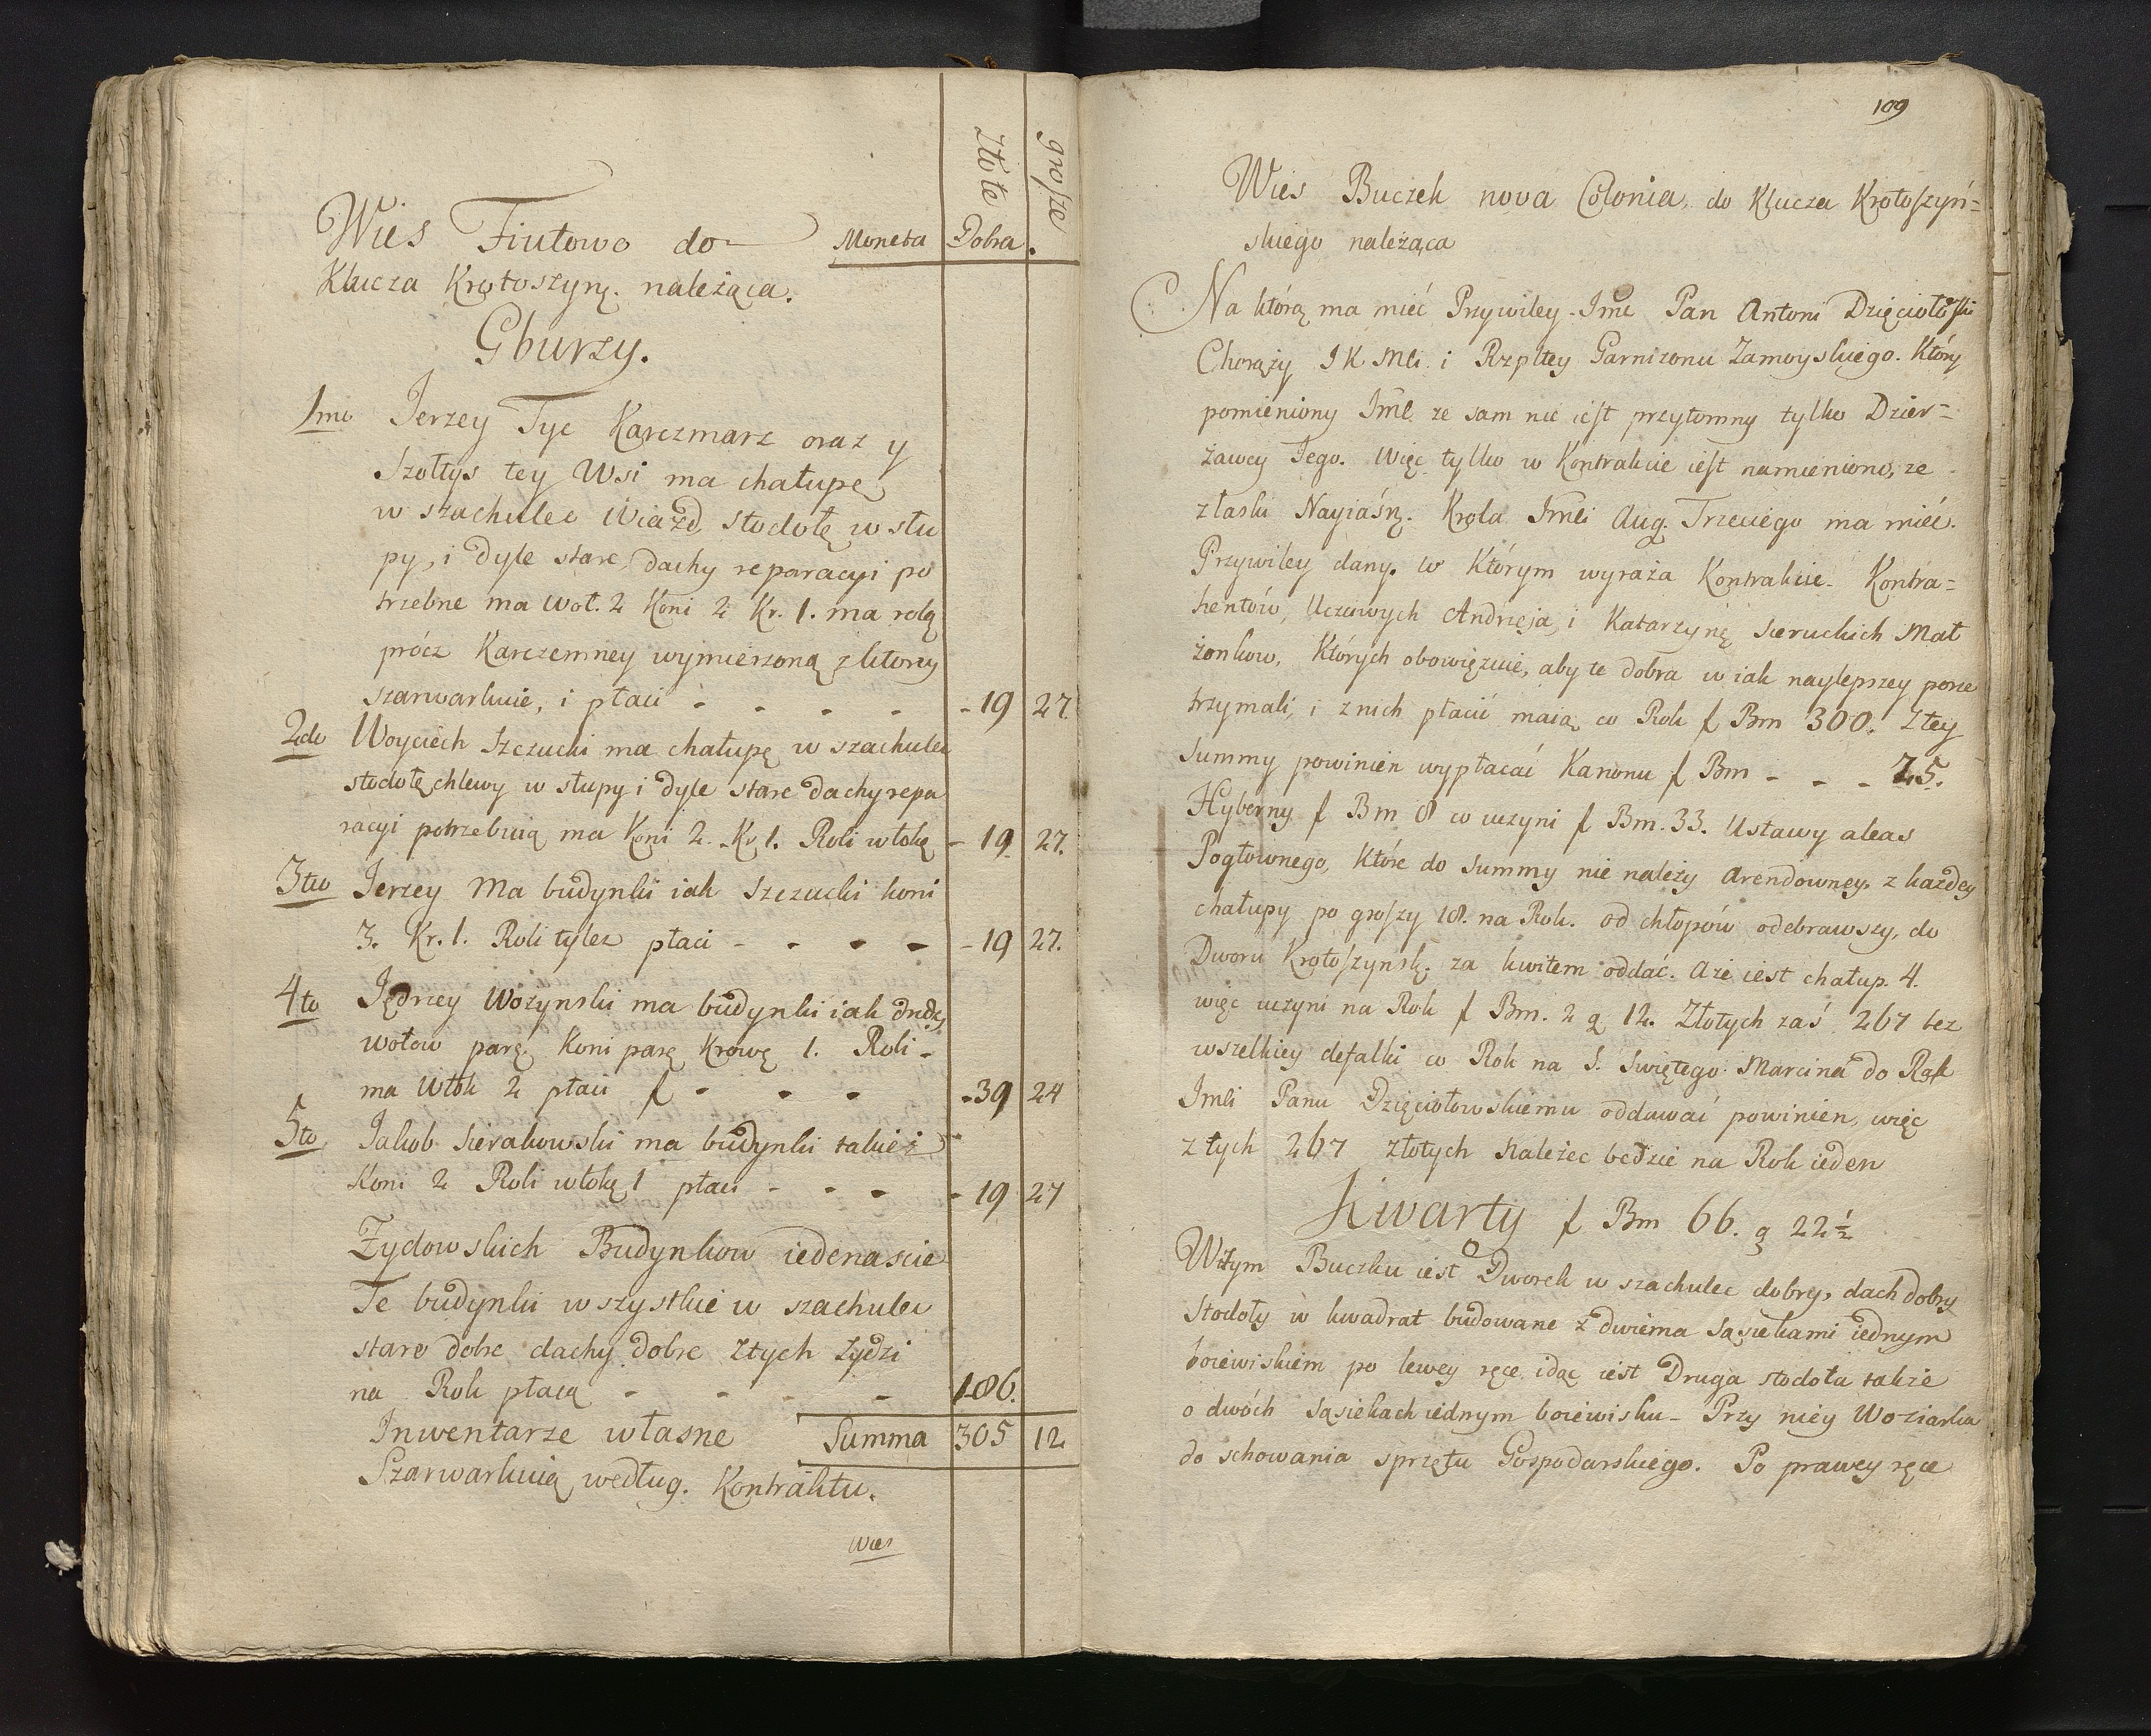 Złote grosze
Wies Fiutowo do Moneta Dobra.
Klucza Krotoszyn. należąca.
Gburzy.
1mo Jerzey Tyc Karczmarz oraz y
Szołtys tey Wsi ma chałupę
w szachulec Wiazd, stodołę w słu
py, i dyle stare, dachy reparacyi po
trzebne ma woł. 2 Koni 2 Kr. 1. ma rolą
prócz Karczemney wymierzoną z ktorey
szarwarkuie, i płaci - - - - - 19 27.
2do Woyciech Szczucki ma chałupę w szachulec
stodołę chlewy w słupy i dyle stare dachy repa
racyi potrzebuią ma Koni 2. Kr 1. Roli włokę - 19. 27.
3tio Jerzey Ma budynki iak Szczucki koni
3. Kr. 1. Roli tylez płaci - - - - - 19 27.
4to Jędrzey Wożynski ma budynki iak
wołow parę. Koni parę Krowę 1. Roli -
ma Włok 2 płaci f - - - - 39 24
5to Jakob Sierakowski ma budynki takież
Koni 2 Roli włokę 1 płaci - - - - 19 27
Żydowskich Budynkow iedenascie
Te budynki wszystkie w szachulec
stare dobre dachy dobre Ztych żydzi
na Rok płacą - - - - 186.
Inwentarze własne Summa 305 12
Szarwarkuią według. Kontraktu.
Wies
109
Wies Buczek nova Colonia, do Klucza Krotoszyń=
skiego należąca
Na którą ma mieć Przywiley Imć Pan Antoni Dzięciołoski
Chorąży J K Mci i Rzpltey Garnizonu Zamoyskiego. Który
pomieniony Imć ze sam nie iest przytomny tylko Dzier=
żawcy Jego. Więc tylko w Kontrakcie iest namieniono, ze
z łaski Nayiaśn. Krola Imci Aug. Trzeciego ma mieć.
Przywiley dany. w Którym wyraża Kontrakcie. Kontra=
hentów, Uczciwych Andrzeja, i Katarzynę Sieruckich Mał
żonkow, Których obowięzuie, aby te dobra w iak naylepszey porze
trzymali, i z nich płacić maią co Rok f Bm 300. Z tey
Summy powinien wypłacać Kanonu f Bm - - - 25.
Hyberny f Bm 8 co uczyni f Bm. 33. Ustawy aleas
Pogłownego, Które do Summy nie należy Arendowney. z każdey
chałupy po groszy 18. na Rok. od chłopów odebrawszy, do
Dworu Krotoszynsk. za kwitem oddać. A że iest chałup. 4.
więc uczyni na Rok f Bm. 2 g 12. Złotych zaś 267 bez
wszelkiey defalki co Rok na S. Swiętego Marcina do Rąk
Imci Panu Dzięciołowskiemu oddawać powinien, więc
z tych 267 złotych Należec będzie na Rok ieden
Kwarty f Bm 66. g 22½
W tym Buczku iest Dworek w szachulec dobry, dach dobry
Stodoły w kwadrat budowane z dwiema sąsiekami iednym
boiewiskiem po lewey ręce idąc iest Druga stodoła także
o dwóch sąsiekach iednym boiewisku - Przy niey Woziarka
do schowania sprzętu Gospodarskiego. Po prawey ręce